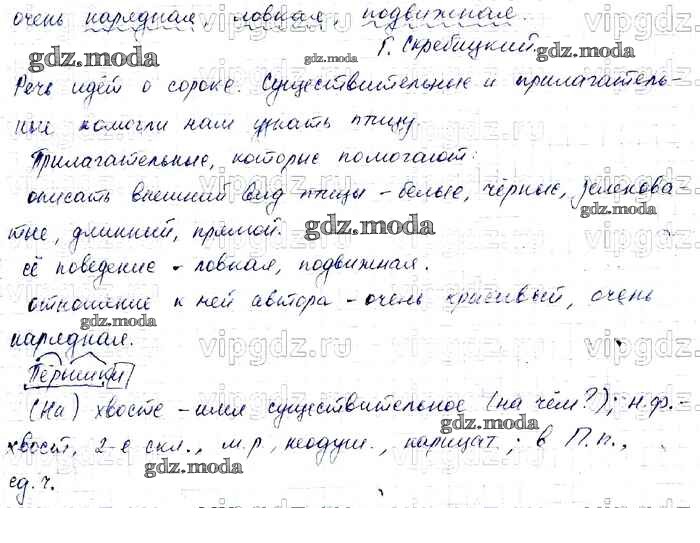 очень нарядная, ловкая, подвижная.
Г. Скребицкий.
Речь идёт о сороке. Существительные и прилагатель-
ные помогли нам узнать птицу.
Прилагательные, которые помогают:
описать внешний вид птицы - белые, чёрные, зеленова
тые, длинный, прямой.
её поведение - ловкая, подвижная.
отношение к ней автора - очень красивый, очень
нарядная.
Пёрышки
(На) хвосте - имя существительное (на чём?); н.ф.-
хвост, 2-е скл., м.р, неодуш., нарицат.; в П.п.,
ед.ч.
vipgdz.ru
gdz.moda